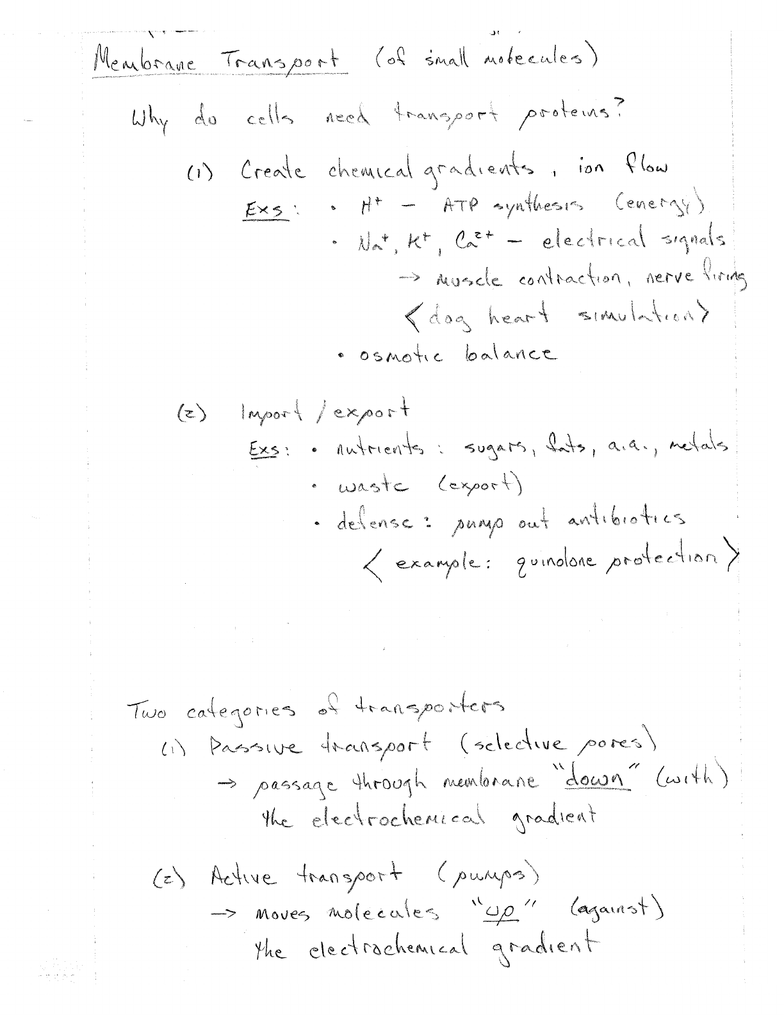 Membrane Transport (of small molecules)
Why do cells need transport proteins?
(1) Create chemical gradients, ion flow
Exs: • H⁺ – ATP synthesis (energy)
• Na⁺, K⁺, Ca²⁺ – electrical signals
→ muscle contraction, nerve firing
<dog heart simulation>
• osmotic balance
(2) Import/export
Exs: • nutrients: sugars, fats, a.a., metals
• waste (export)
• defense: pump out antibiotics
<example: quinolone protection>
Two categories of transporters
(1) Passive transport (selective pores)
→ passage through membrane "down" (with)
the electrochemical gradient
(2) Active transport (pumps)
→ moves molecules "up" (against)
the electrochemical gradient